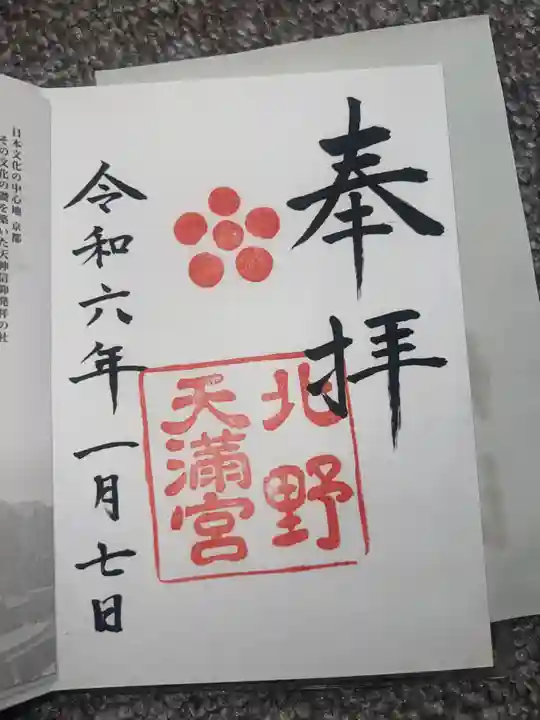 奉拝
北野
天満宮
令和六年一月七日
日本文化の中心地 京都
その文化の礎を築いた天神信仰発祥の社